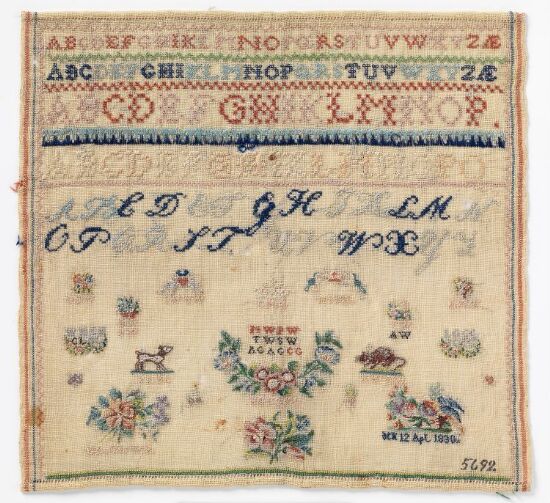 ABCDEFGHIKLMNOPQRSTUVWXYZÆ
ABCDEFGHIKLMNOPQRSTUVWXYZÆ
ABCDEFGHIKLMNOP.
ABCDEFGHIKLMNOP
ABCDEFGHIKLMN
OPQRSTUVWXYZ
AW
MWPW
TWSW
AGAGCG
MK 12 Apl. 1830.
5692.